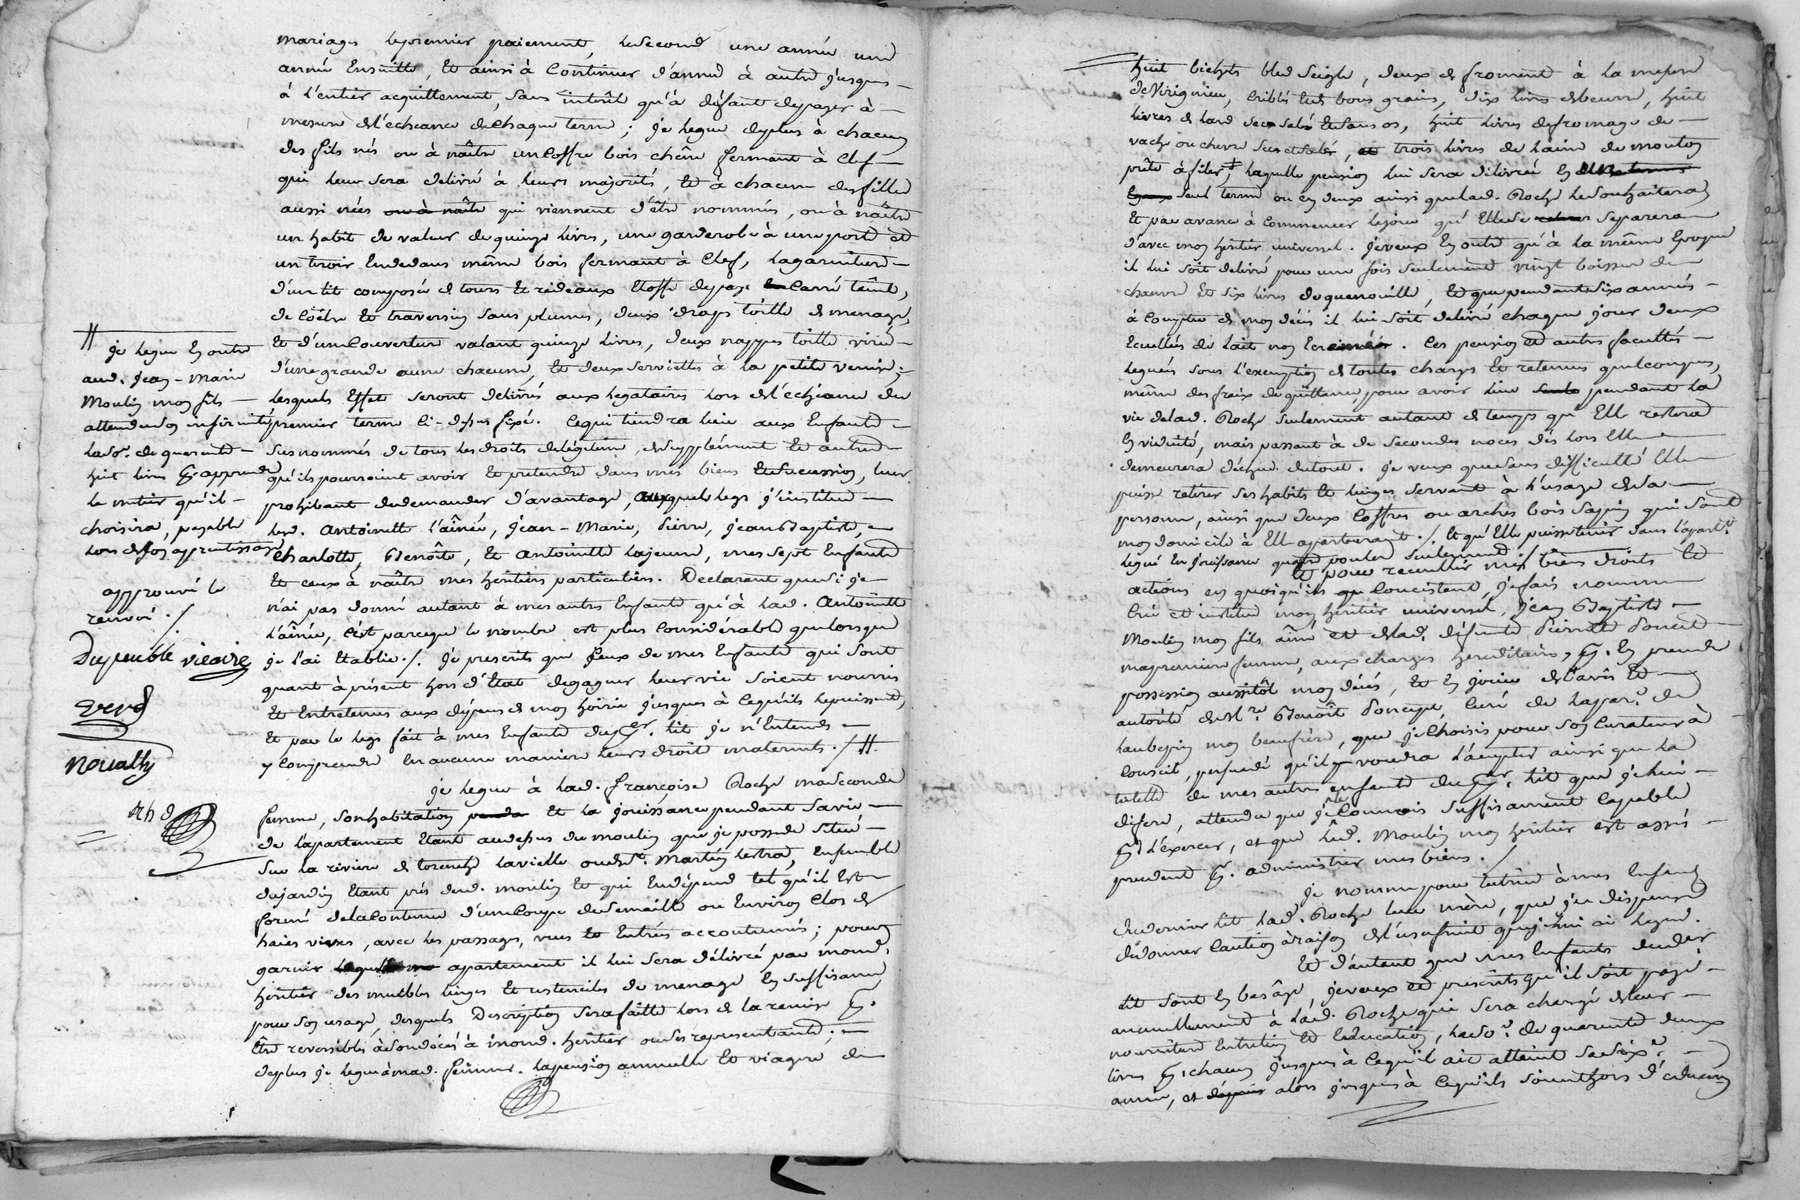 mariages le premier paiement, le second une année une
année Ensuitte, Et ainsi à Continuer d'année à autre jusques
à l'entier acquittement, sans intérêt qu'à défaut de payer à
mesure de l'échéance de Chaque terme ; je legue de plus à chacun
des fils nés ou à naître un Coffre bois chêne fermant à Clef
qui leur sera delivré à leurs majorités, Et à chacune des filles
aussi nées ou à naître qui viennent d'être nommés, ou à naître
un habit de valeur de quinze livres, une garderobe à une porte et
un tiroir Endedans même bois fermant à Clef, la garniture
d'un lit composée de tours Et rideaux Etoffe de pays Carré teint,
de Coëtre Et traversin sans plumes, deux draps toille de menage,
Et d'une Couverture valant quinze livres, deux nappes toille
d'une grande aune chacune, Et deux serviettes à la petite venise ;
lesquels Effets seront delivrés aux legataires lors de l'échéance du
premier terme Ci-dessus fixé. Ce qui tiendra lieu aux Enfants
Sus nommés de tous les droits de légitime, de supplément Et autres
qu'ils pourroient avoir Et pretendre dans mes biens Et succession, leur
prohibant de demander d'avantage, auxquels legs j'institue
lesd. Antoinette l'aînée, Jean-Marie, Pierre, Jean Baptiste,
Charlotte, Benoîte, Et Antoinette la jeune, mes sept Enfants
Et ceux à naître mes héritiers particuliers. Declarant que si je
n'ai pas donné autant à mes autres Enfants qu'à lad. Antoinette
l'aînée, c'est parceque le nombre est plus Considérable que lorsque
je l'ai Etablie./. Je prescrits que Ceux de mes Enfants qui sont
quant à présent hors d'Etat de gagner leur vie soient nourris
Et Entretenus aux dépens de mon hoirie jusques à Cequ'ils le puissent,
Et par le legs fait à mes Enfants du per. lit je n'Entends
y Comprendre En aucune manière leurs droits maternels./.#.
je legue à lad. françoise Roche ma seconde
femme, son habitation Et la jouissance pendant sa vie
de l'apartement Etant au dessus du moulin que je possede situé
Sur la riviere de toranche la vielle oudt. Martin Lestrad, Ensemble
du jardin Etant près dud. moulin Et qui En dépend tel qu'il Est
formé de la Contenue d'une Coupe de Semaille ou Environ Clos de
haies vives, avec les passages, vues Et Entrées accoutumés ; pour
garnir lequel apartement il lui sera délivré par mond.
héritier des meubles linges Et ustenciles de menage En suffisance
pour son usage, desquels Description sera faitte lors de la remise pr.
Etre reversibles à son décès à mond. héritier ou ses representants ;
de plus je legue à mad. femme. la pension annuelle Et viagere de
#
je legue En outre
aud. Jean-Marie
Moulin mon fils
attendu son infirmité
la so. de quarente
huit livres pr apprendre
le metier qu'il
choisira, payable
lors de son aprentissage
approuvé le
renvoi./.
Dupeuble vicaire
verd
Noually
huit bichets bled Seigle, deux de froment à la mesure
de Virignieu, criblés Et bons grains, dix livres de beurre, huit
livres de lard sec salé Et sans os, huit livres de fromage de
vache ou chevre sec et salé, trois livres de laine de mouton
prête à filer, laquelle pension lui sera délivrée En
seul terme ou En deux ainsi que lad. Roche le souhaitera
Et par avance à Commencer le jour qu'Elle se separera
d'avec mon héritier universel. Je veux En outre qu'à la même Epoque
il lui soit delivré pour une fois seulement vingt
chanvre Et six livres de quenouille, Et que pendant six années
à Compter de mon décès il lui soit delivré chaque jour deux
Ecuellées de lait non Ecremées. Ces pension et autres facultés
legués sous l'exemption de toutes charges Et retenues quelconques,
même des fraix de quittance, pour avoir lieu pendant la
vie de lad. Roche seulement autant de temps qu'Elle restera
En viduité, mais passant à de secondes noces dès lors Elle
demeurera déchue du tout. Je veux que sans difficulté Elle
puisse retirer ses habits Et linges servant à l'usage de sa
personne, ainsi que deux Coffres ou arches bois sapin qui sont
mon domicile à Elle apartenant./. Et qu'Elle puisse tenir dans l'apart.t
legué En jouissance quatre poules seulement./.
Et pour recueillir mes biens droits Et
actions en quoi qu'ils Concistent, je fais nomme
Crée et institue mon héritier universel, Jean Baptiste
Moulin mon fils aîné et de lad. défunte Pierrette Poncet
ma premiere femme, aux charges hereditaires, pr. En prendre
possession aussitôt mon décès, Et En jouir de l'avis Et
autorité de Mr. Benoît Poncet Curé de la par. de
laubepin mon beaufrère, que je Choisis pour son Curateur à
Conseil, persuadé qu'il voudra l'accepter ainsi que la
tutelle de mes autres enfants du per. lit que je lui
difere, attendu que je le Connois suffisament Capable
pr. l'exercer, et que led. Moulin mon héritier est assés
prudent pr. administrer mes biens./.
Je nomme pour tutrice à mes Enfants
du dernier lit lad. Roche leur mère, que j'en dispense
de donner Caution à raison de l'usufruit que je lui ai legué.
Et d'autant que mes Enfants du der
lit sont En bas âge, je veux et prescrits qu'il soit payé
annuellement à lad. Roche qui sera chargé de leur
nourriture Entretien Et Education, la so. de quarente deux
livres pr. chacun jusques à Cequ'il ait atteint sa dixe.
année, et alors jusques à Cequ'ils soient hors d'éducation